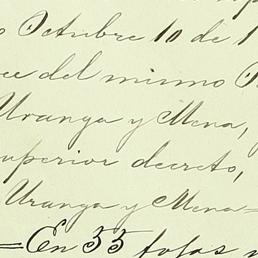 Octubre 10 de 1
del mismo
Uranga y Mena,
superior decreto,
Uranga y Mena=
=En 55 fojas